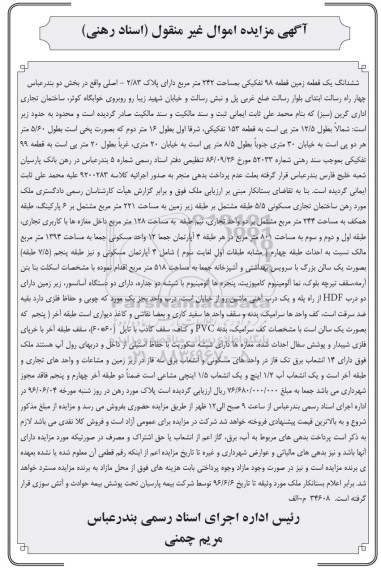 آگهی مزایده اموال غیر منقول (اسناد رهنی)
ششدانگ یک قطعه زمین قطعه ۹۸ تفکیکی بمساحت ۲۴۲ متر مربع دارای پلاک ۲/۸۳ – اصلی واقع در بخش دو بندرعباس
چهار راه رسالت ابتدای بلوار رسالت ضلع غربی پل و نبش رسالت و خیابان شهید زیبا رو روبروی خوابگاه کوثر، ساختمان تجاری
اداری گرین (سبز) که بنام محمد علی ثابت ایمانی ثبت و سند مالکیت و سند مالکیت صادر گردیده است و محدود به حدود زیر
است: شمالاً بطول ۱۲/۵ متر پی است به قطعه ۱۵۳ تفکیکی، شرقا اول بطول ۱۶ متر دوم که بصورت پخی است بطول ۵/۶۰ متر
هر دو پی است به خیابان ۳۰ متری جنوباً بطول ۸/۵ متر پی است به خیابان ۲۰ متری، غرباً بطول ۲۰ متر پی است به قطعه ۹۹
تفکیکی بموجب سند رهنی شماره ۵۲۰۳۳ مورخ ۸۶/۰۹/۲۶ تنظیمی دفتر اسناد رسمی شماره ۵ بندرعباس در رهن بانک پارسیان
شعبه خلیج فارس بندرعباس قرار گرفته بعلت عدم پرداخت بدهی منجر به صدور اجرائیه کلاسه ۹۲۰۰۲۸۳ علیه محمد علی ثابت
ایمانی گردیده است. بنا به تقاضای بستانکار مبنی بر ارزیابی ملک فوق و برابر گزارش هیأت کارشناسان رسمی دادگستری ملک
مورد رهن ساختمان تجاری مسکونی ۵/۵ طبقه مشتمل بر طبقه زیر زمین به مساحت ۲۳۱ متر مربع مشتمل بر ۶ پارکینگ، طبقه
همکف به مساحت ۲۴۴ متر مربع مشتمل بر دو واحد تجاری، نیم طبقه به مساحت ۱۲۸ متر مربع داخل مغازه ها با کاربری تجاری،
طبقه اول و دوم و سوم به مساحت ۸۰۱ متر مربع در هر طبقه ۴ آپارتمان جمعا ۱۲ واحد مسکونی جمعا به مساحت ۱۳۹۴ متر مربع
مالک نسبت به احداث طبقه چهارم (مشابه طبقات اول لغایت سوم) شامل ۴ آپارتمان مسکونی و نیز طبقه پنجم (۷/۵ طبقه)
بصورت یک سالن بزرگ با سرویس بهداشتی و آشپزخانه جمعا به مساحت ۵۱۸ متر مربع اقدام نموده با مشخصات اسکلت بنا بتن
آرمه،سقف تیرچه بلوک، نما آلومینیوم کامپوزیت، پنجره ها آلومینیوم با شیشه دو جداره، دارای دو دستگاه آسانسور، زیر زمین دارای
دو درب HDF از راه پله و یک درب آهنی ماشین رو از خیابان است، درب واحد بجز یک مورد که چوبی و حفاظ فلزی دارد بقیه
ضد سرقت است، کف واحد ها سرامیک، بدنه و سقف واحد ها سفید کاری و بعضا نقاشی و کاغذ دیواری است طبقه آخر (پنجم که
بصورت یک سالن است با مشخصات کف سرامیک، بدنه PVC و کناف، سقف کاذب با تایل (۶۰*۶۰)، سقف طبقه آخر با خرپای
فلزی شیبدار و پوشش سفال احداث شده مغازه ها دارای شیشه سکوریت با حفاظ استیل از داخل و دربهای رول آپ هستند ملک
فوق دارای ۱۴ انشعاب برق تک فاز در واحد های مسکونی و انشعاب برق سه فاز در زیر زمین و مشاعات و واحد های تجاری و
طبقه آخر است و یک انشعاب آب ۱/۲ اینچ و یک انشعاب ۱/۵ اینچی مشاعی است ضمناً دو طبقه آخر چهارم و پنجم فاقد مجوز
شهرداری می باشد جمعا به مبلغ ۷۶/۶۸۰/۰۰۰/۰۰۰ ریال ارزیابی گردیده است پلاک مورد رهن در روز شنبه مورخه ۹۶/۰۶/۰۴ در
اداره اجرای اسناد رسمی بندرعباس از ساعت ۹ صبح الی۱۲ ظهر از طریق مزایده حضوری بفروش می رسد و مزایده از مبلغ مذکور
شروع و به بالاترین قیمت پیشنهادی فروخته خواهد شد شرکت در مزایده برای عمومی آزاد است و فروش کلا نقدی می باشد لازم
به ذکر است پرداخت بدهی های مربوط به آب، برق، گاز اعم از انشعاب یا حق اشتراک و مصرف در صورتیکه مورد مزایده دارای
آنها باشد و نیز بدهی های مالیاتی و عوارض شهرداری و غیره تا تاریخ مزایده اعم از اینکه رقم قطعی آن معلوم شده یا نشده بعهده
ی برنده مزایده است و نیز در صورت وجود مازاد وجوه پرداختی بابت هزینه های فوق از محل مازاد به برنده مزایده مسترد خواهد
شد. برابر اعلام بستانکار ملک مورد وثیقه تا تاریخ ۹۶/۶/۶ توسط شرکت بیمه پارسیان تحت پوشش بیمه حوادث و آتش سوزی قرار
گرفته است. ۳۴۶۰۸ م-الف
رئیس اداره اجرای اسناد رسمی بندرعباس
مریم چمنی